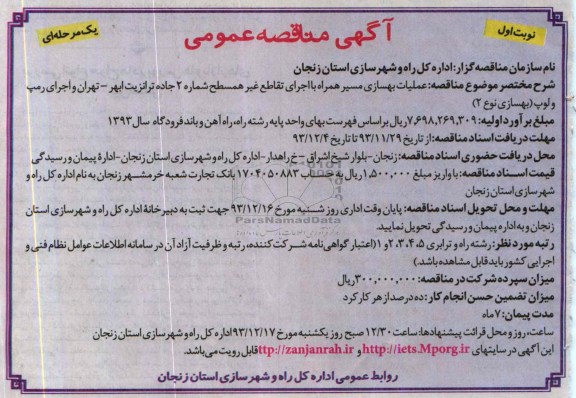 نوبت اول
آگهی مناقصه عمومی
یک مرحله‌ای
نام سازمان مناقصه گزار: اداره کل راه و شهرسازی استان زنجان
شرح مختصر موضوع مناقصه: عملیات بهسازی مسیر همراه با اجرای تقاطع غیر همسطح شماره ۲ جاده ترانزیت ابهر - تهران و اجرای رمپ
و لوپ (بهسازی نوع ۲)
مبلغ برآورد اولیه: ۷,۶۹۸,۲۶۹,۳۰۹ ریال بر اساس فهرست بهای واحد پایه رشته راه، راه آهن و باند فرودگاه سال ۱۳۹۳
مهلت دریافت اسناد مناقصه: از تاریخ ۹۳/۱۱/۲۹ تا تاریخ ۹۳/۱۲/۴
محل دریافت حضوری اسناد مناقصه: زنجان - بلوار شیخ اشراق - خ راهدار - اداره کل راه و شهرسازی استان زنجان - ادارۀ پیمان و رسیدگی
قیمت اسناد مناقصه: با واریز مبلغ ۱,۵۰۰,۰۰۰ ریال به حساب ۱۷۰۴۰۵۰۸۸۳ بانک تجارت شعبه خرمشهر زنجان به نام اداره کل راه و
شهرسازی استان زنجان
مهلت و محل تحویل اسناد مناقصه: پایان وقت اداری روز شنبه مورخ ۹۳/۱۲/۱۶ جهت ثبت به دبیرخانۀ اداره کل راه و شهرسازی استان
زنجان و به اداره پیمان و رسیدگی تحویل نمایید.
رتبه مورد نظر: رشته راه و ترابری ۲،۳،۴،۵ و ۱ (اعتبار گواهی نامه شرکت کننده، رتبه و ظرفیت آزاد آن در سامانه اطلاعات عوامل نظام فنی و
اجرایی کشور باید قابل مشاهده باشد.)
میزان سپرده شرکت در مناقصه: ۳۰۰,۰۰۰,۰۰۰ ریال
میزان تضمین حسن انجام کار: ده درصد از هر کارکرد
مدت پیمان: ۷ ماه
ساعت، روز و محل قرائت پیشنهادها: ساعت ۱۲/۳۰ صبح روز یکشنبه مورخ ۹۳/۱۲/۱۷ اداره کل راه و شهرسازی استان زنجان
این آگهی در سایتهای http://iets.Mporg.ir و ttp://zanjanrah.ir قابل رویت می‌باشد.
روابط عمومی اداره کل راه و شهرسازی استان زنجان
ParsNamadData